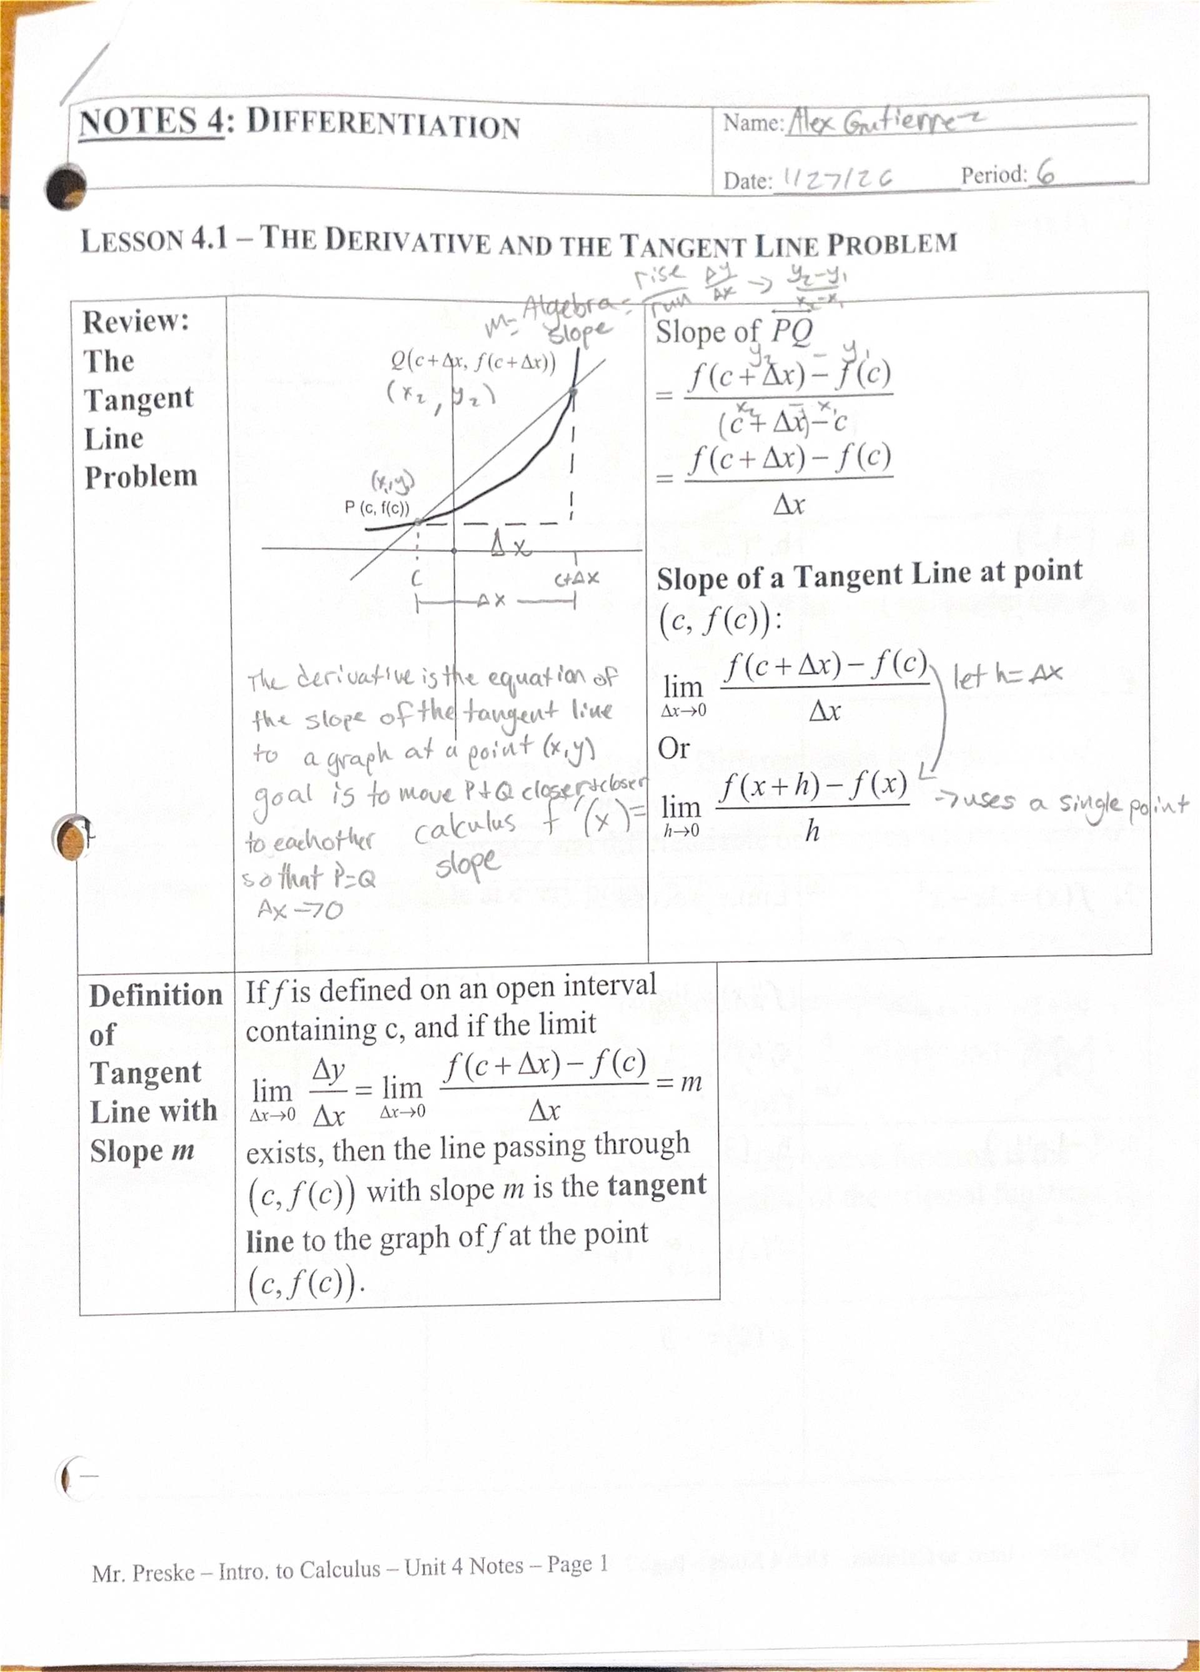 NOTES 4: DIFFERENTIATION
Name: Alex Gutierrez
Date: 1/27/26 Period: 6
LESSON 4.1 – THE DERIVATIVE AND THE TANGENT LINE PROBLEM
Review:
The
Tangent
Line
Problem
m= Algebra slope = rise/run Δy/Δx → (y₂-y₁)/(x₂-x₁)
Q(c+Δx, f(c+Δx))
(x₂, y₂)
(x,y)
P (c, f(c))
Δx
C
C+ΔX
ΔX
The derivative is the equation of
the slope of the tangent line
to a graph at a point (x,y)
goal is to move P+Q closer+closer
to eachother
so that P=Q
Δx→0
calculus
slope
f'(x)=
Slope of PQ
y₂ - y₁
= (f(c+Δx)−f(c))/((c+Δx)−c)
x₂ - x₁
= (f(c+Δx)−f(c))/Δx
Slope of a Tangent Line at point
(c, f(c)):
lim Δx→0 (f(c+Δx)−f(c))/Δx
let h=Δx
Or
lim h→0 (f(x+h)−f(x))/h
→uses a single point
Definition
of
Tangent
Line with
Slope m
If f is defined on an open interval
containing c, and if the limit
lim Δx→0 Δy/Δx = lim Δx→0 (f(c+Δx)−f(c))/Δx = m
exists, then the line passing through
(c, f(c)) with slope m is the tangent
line to the graph of f at the point
(c, f(c)).
Mr. Preske – Intro. to Calculus – Unit 4 Notes – Page 1